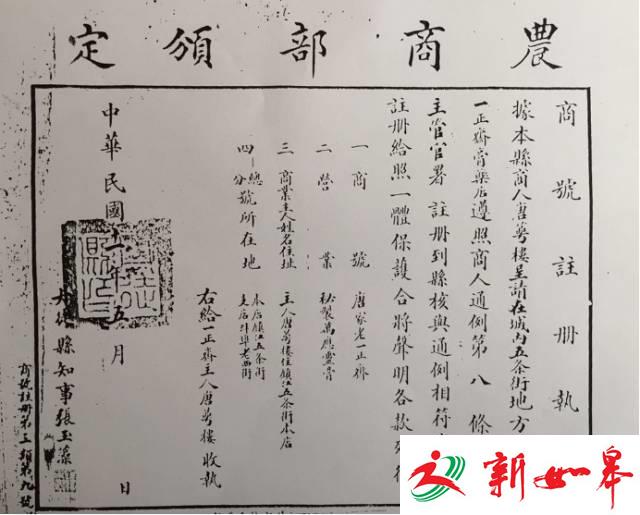 農商部頒定
商號註册執
據本縣商人唐萼樓呈請在城內五条街地方
一正齊膏藥店遵照商人通例第八條
主管官署註册到縣核與通例相符
註册給照一體保護合將聲明各款
一商號 唐家老一正齊
二營業 秘製萬應靈膏
三商業主人姓名住址 主人唐萼樓住鎮江五条街本店
四總分號所在地 本店鎮江五条街 支店蚌埠老西街
右給一正齊主人唐萼樓收執
中華民國 年五月 日
縣知事張玉藻
商號註册第三類第九號
新如皋